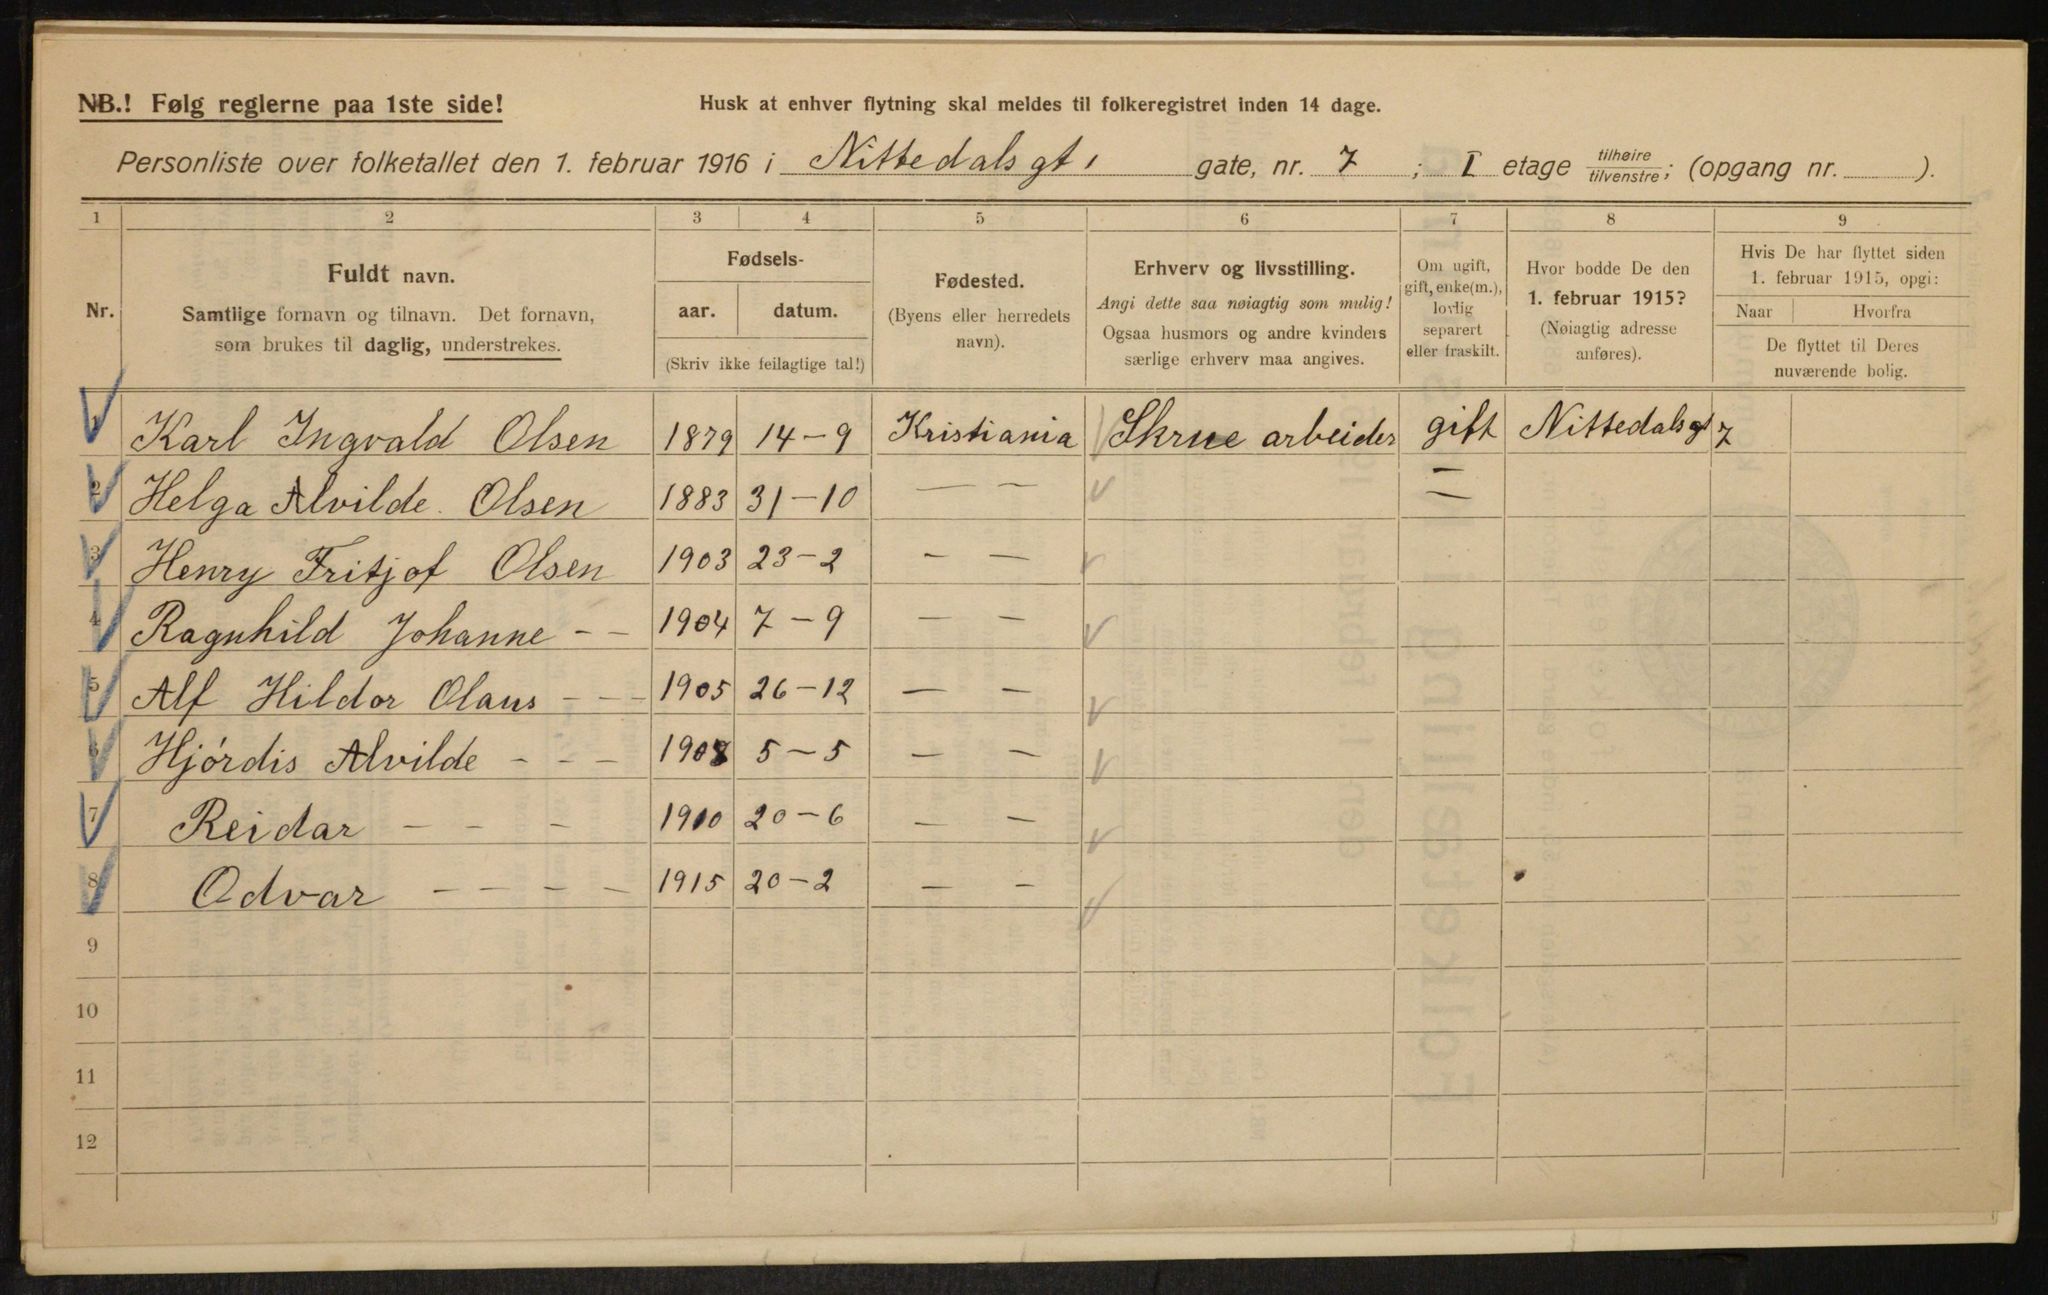 NB.! Følg reglerne paa 1ste side!
Husk at enhver flytning skal meldes til folkeregistret inden 14 dage.
Personliste over folketallet den 1. februar 1916 i Nittedalsgt. gate, nr. 7 ; I etage tilhøire tilvenstre; (opgang nr. ).
1 2 3 4 5 6 7 8 9
Nr.
Fuldt navn.
Samtlige fornavn og tilnavn. Det fornavn,
som brukes til daglig, understrekes.
Fødsels-
aar. datum.
(Skriv ikke feilagtige tal!)
Fødested.
(Byens eller herredets
navn).
Erhverv og livsstilling.
Angi dette saa nøiagtig som mulig!
Ogsaa husmors og andre kvinders
særlige erhverv maa angives.
Om ugift,
gift, enke(m.),
lovlig
separert
eller fraskilt.
Hvor bodde De den
1. februar 1915?
(Nøiagtig adresse
anføres).
Hvis De har flyttet siden
1. februar 1915, opgi:
Naar Hvorfra
De flyttet til Deres
nuværende bolig.
1 Karl Ingvald Olsen 1879 14-9 Kristiania Skrue arbeider gift Nittedalsgt 7
2 Helga Alvilde Olsen 1883 31-10 — — —
3 Henry Fritjof Olsen 1903 23-2 — —
4 Ragnhild Johanne - - 1904 7-9 — —
5 Alf Hildor Olaus - - - 1905 26-12 — —
6 Hjórdis Alvilde - - - 1908 5-5 — —
7 Reidar - - - 1910 20-6 — —
8 Odvar - - - - 1915 20-2 — —
9
10
11
12